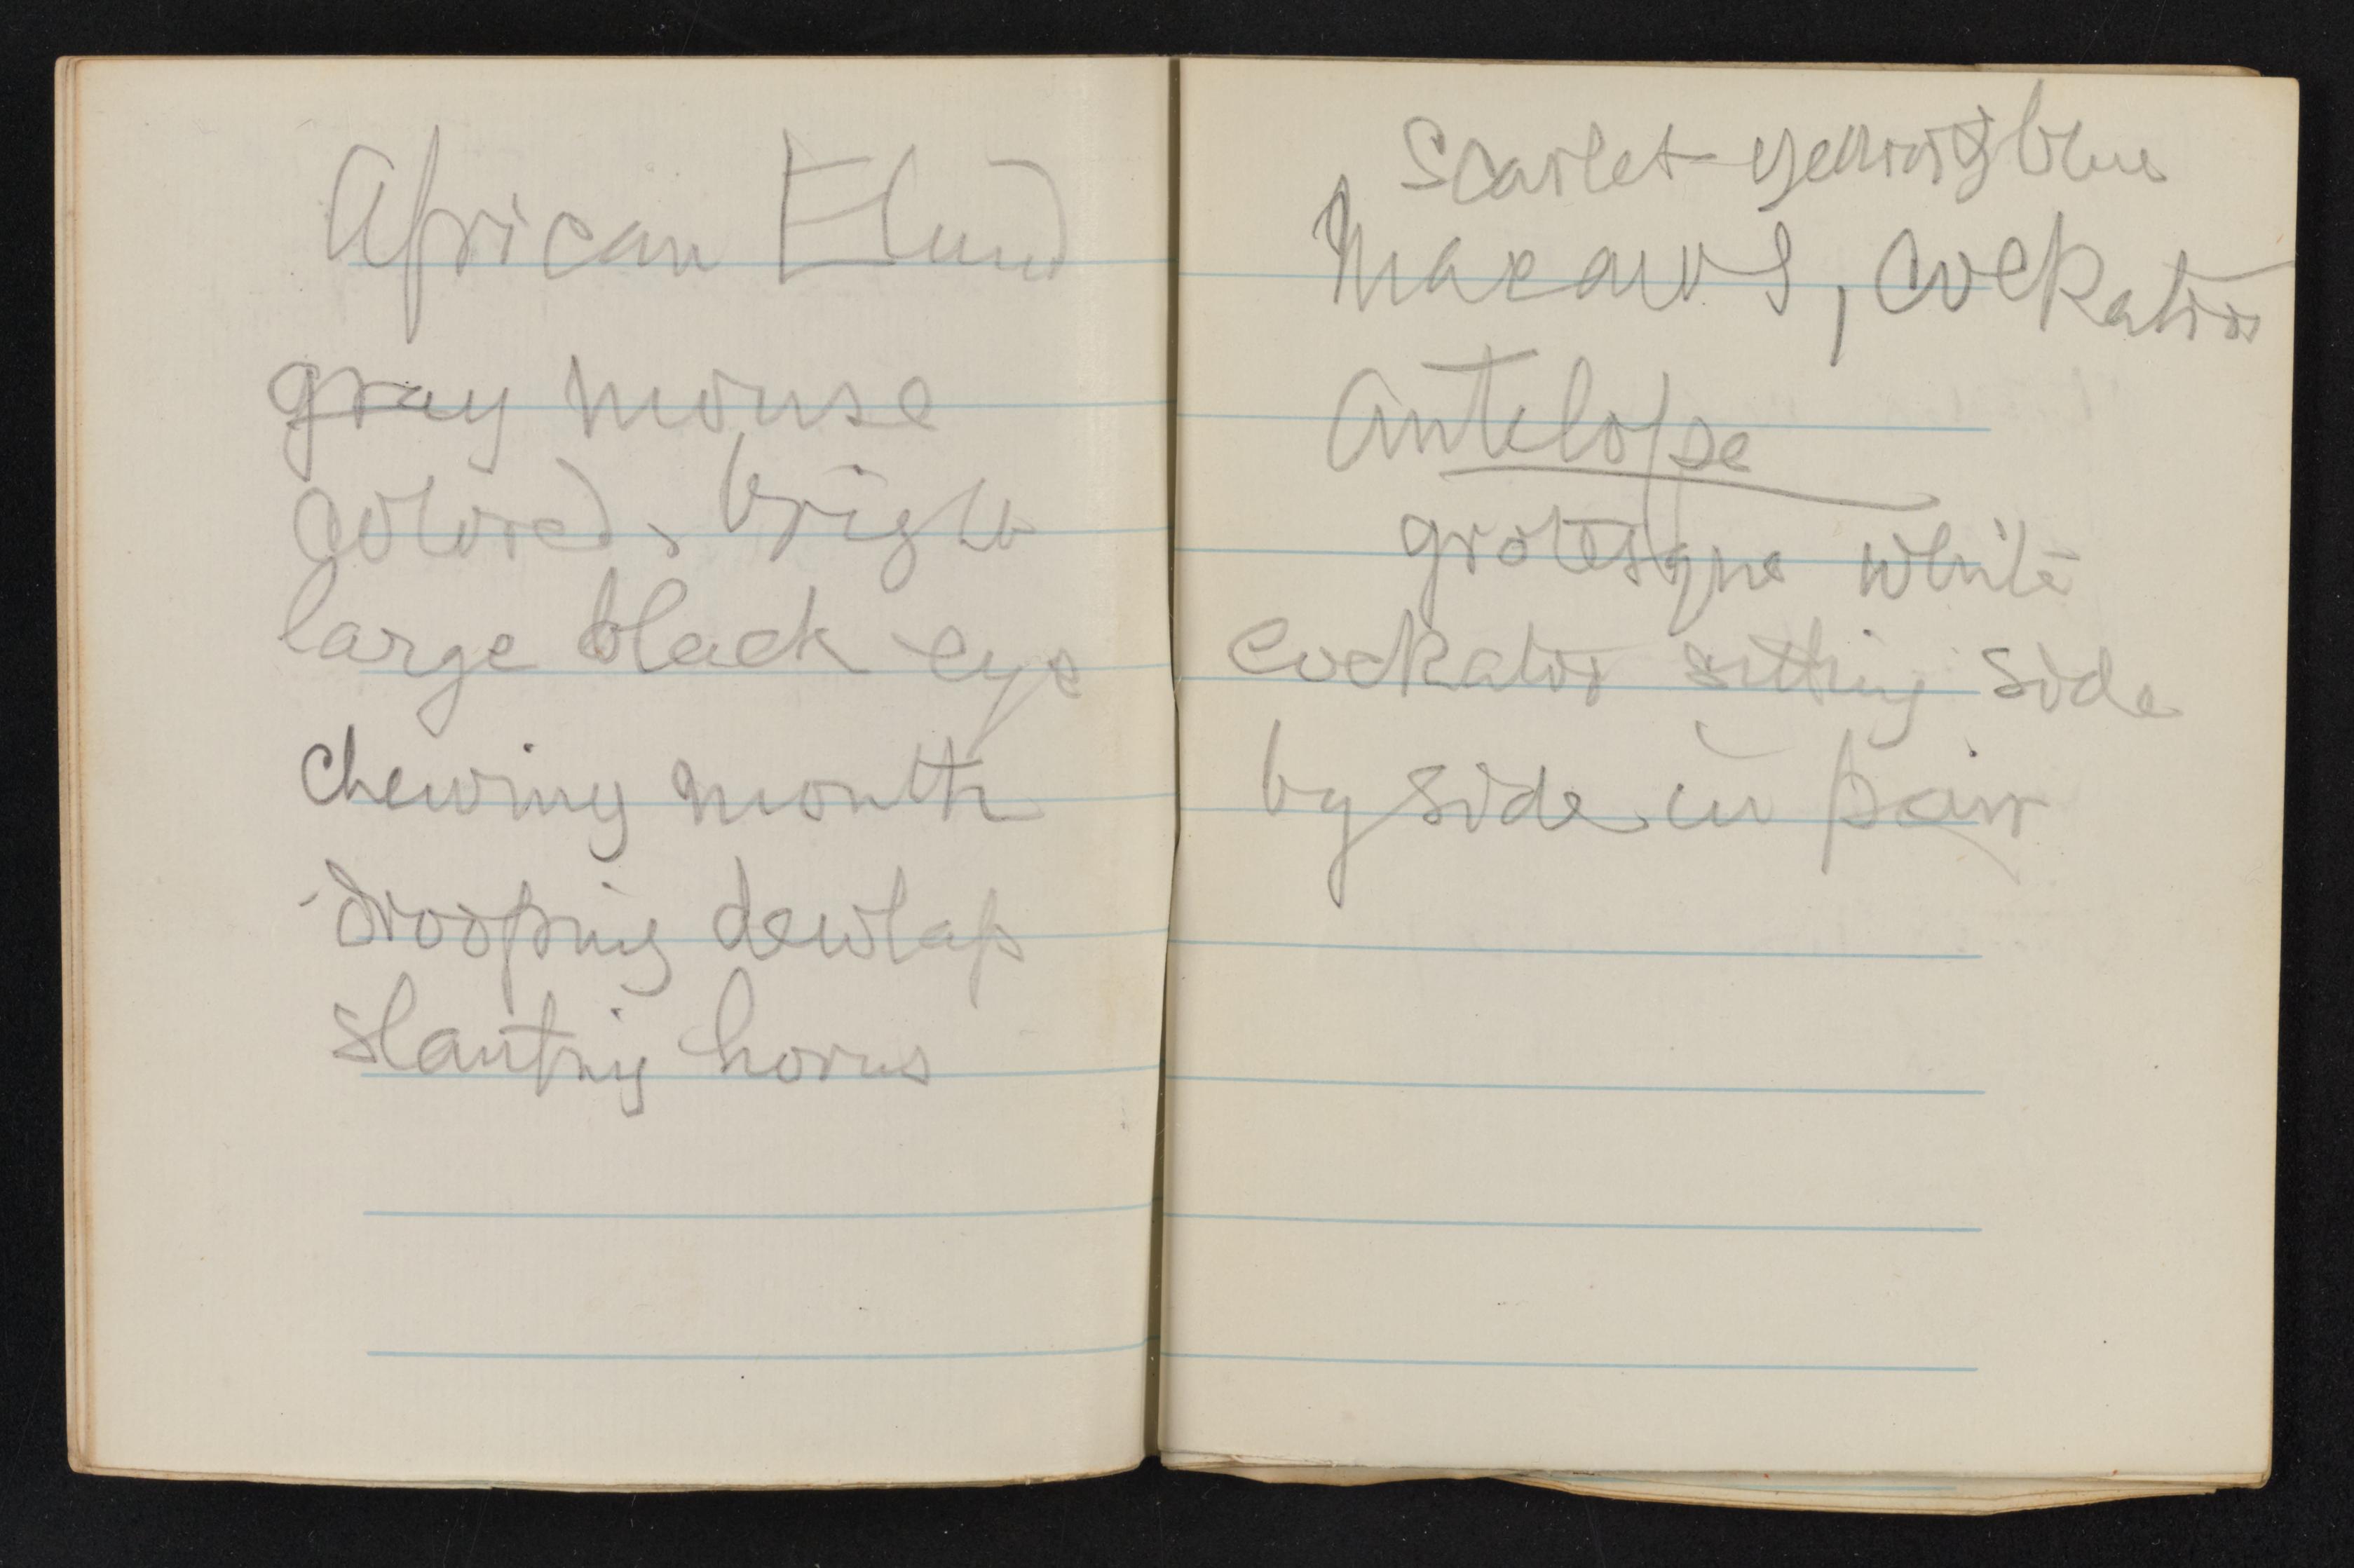 African Elund
gray mouse
colored, bright
large black eye
chewing mouth
drooping dewlap
slanting horns
Scarlet yellow & blue
Macaws, Cockatoos
Antelope
grotesque white
Cockatoo sitting side
by side in pair